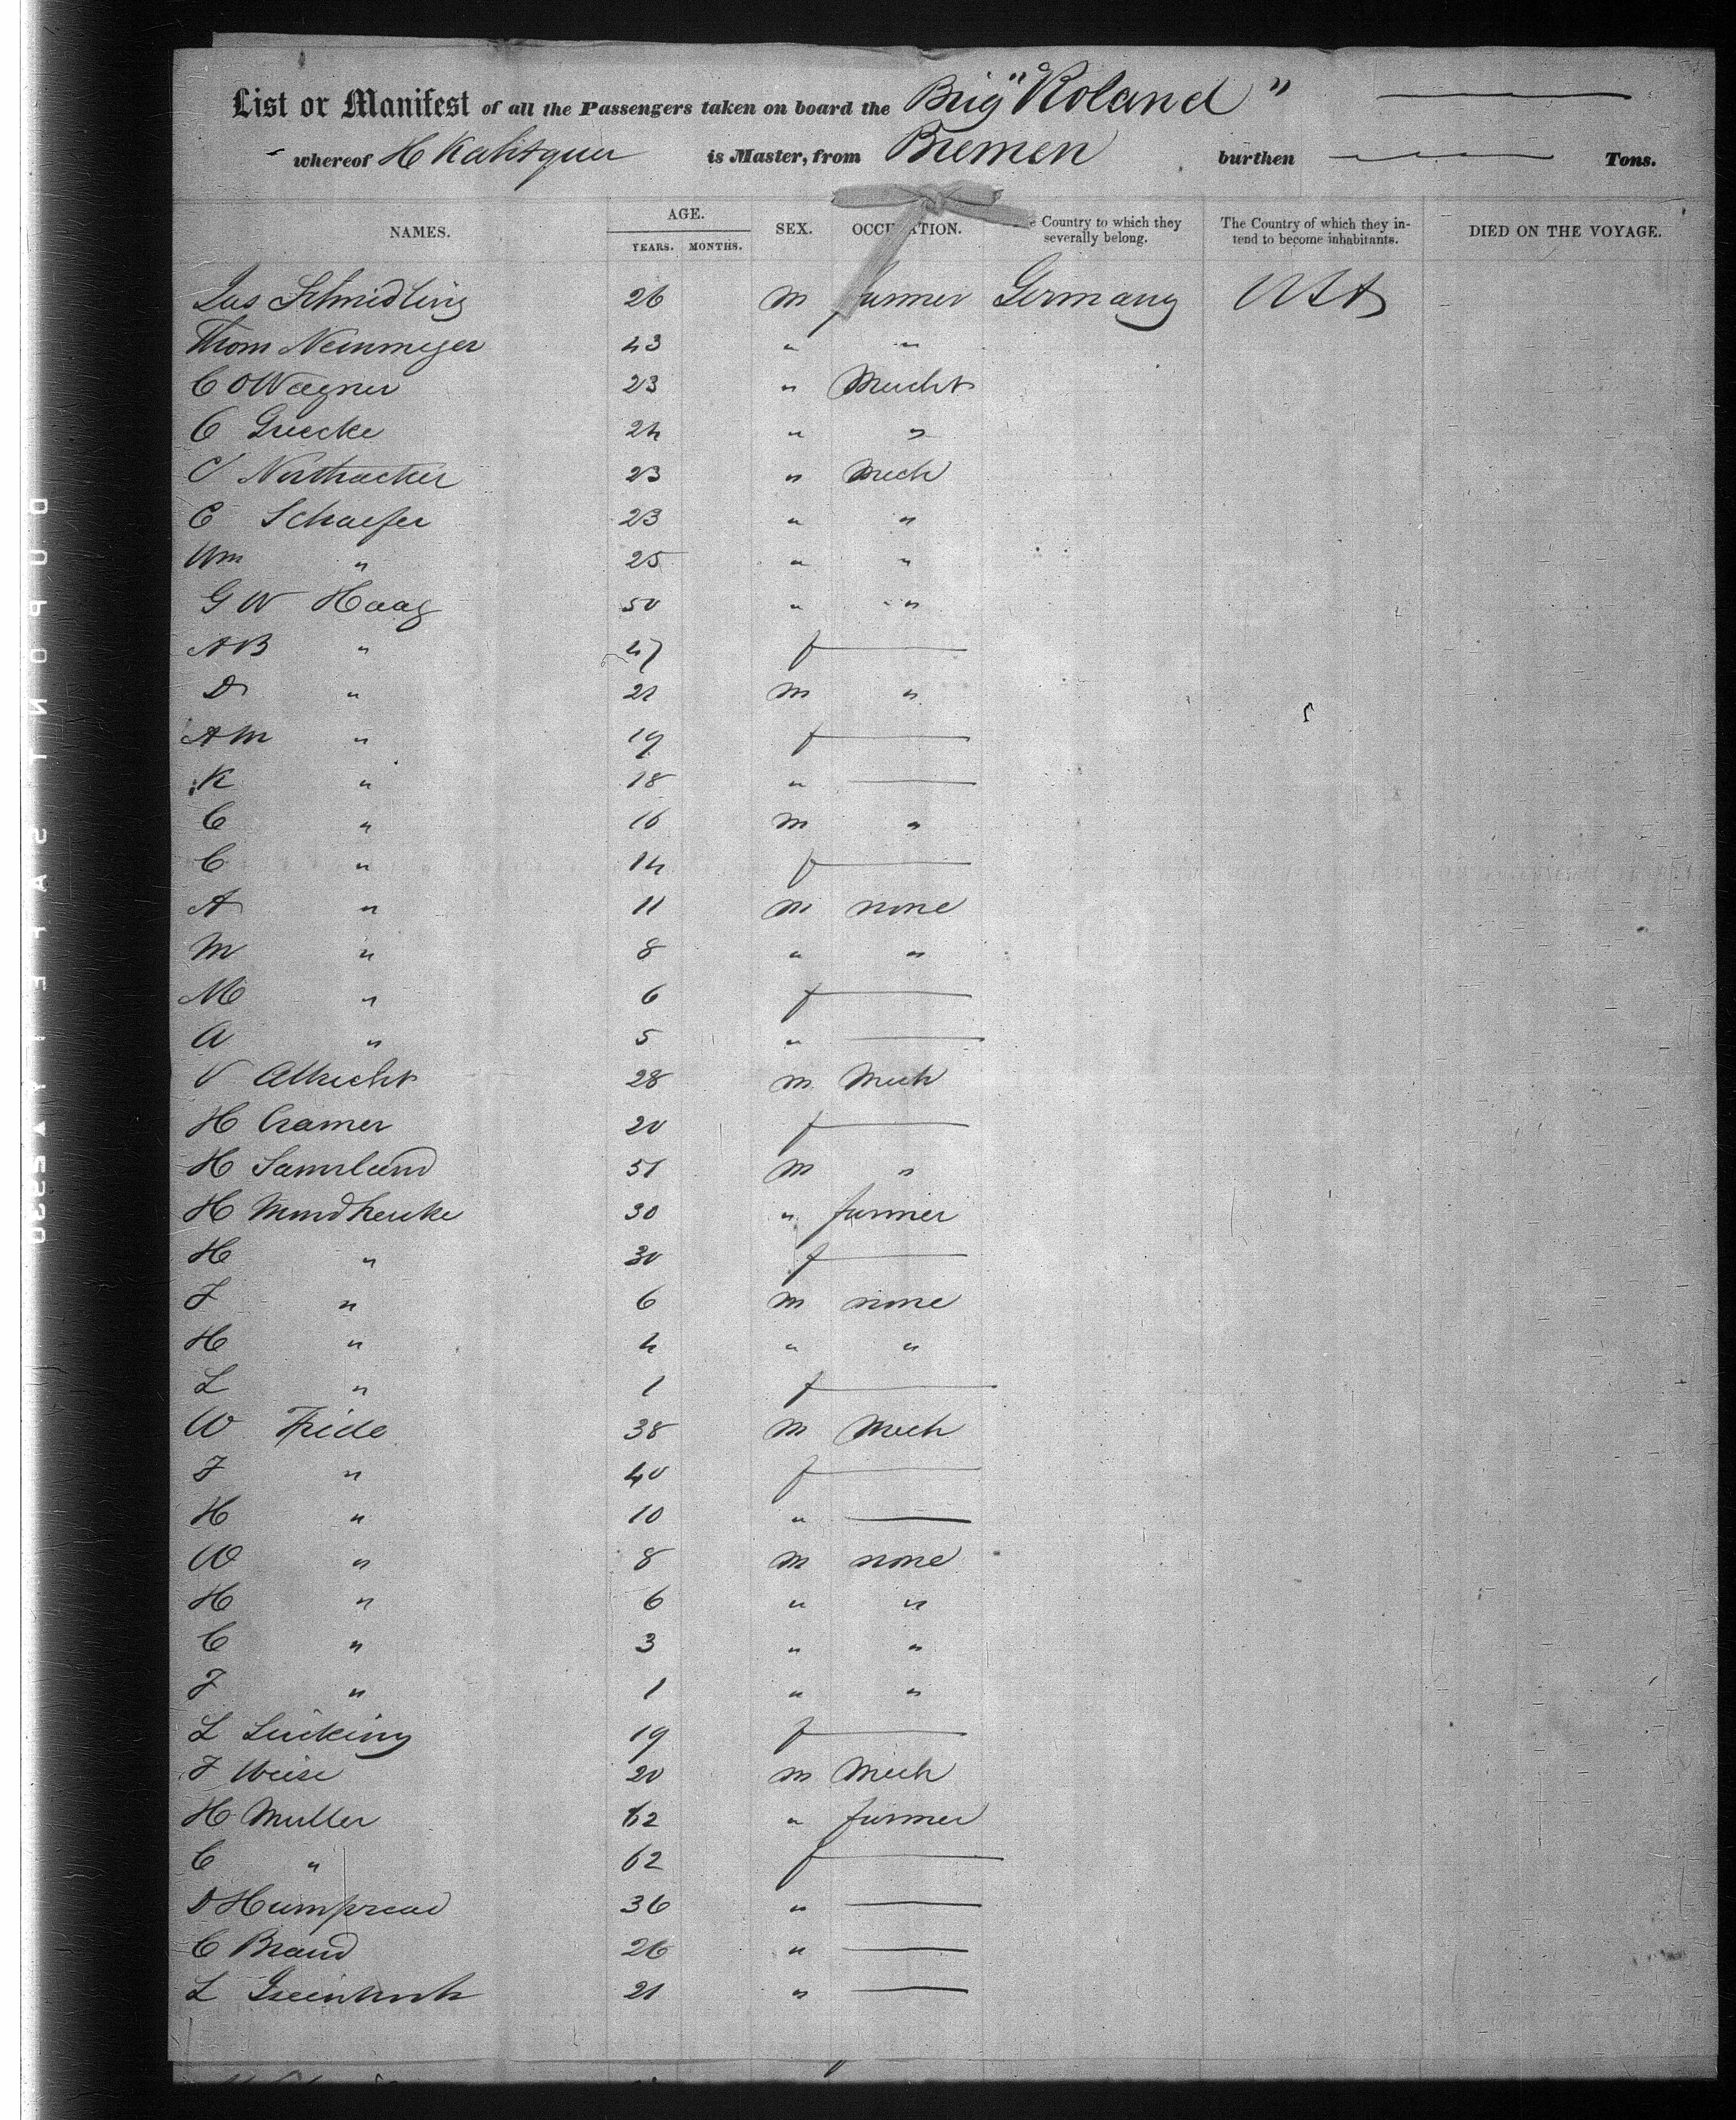 List or Manifest of all the Passengers taken on board the Brig "Roland"
whereof H is Master, from Bremen burthen Tons.
NAMES. AGE. YEARS. MONTHS. SEX. OCCUPATION. Country to which they severally belong. The Country of which they intend to become inhabitants. DIED ON THE VOYAGE.
Jas Schmidling 26 m farmer Germany USA
Thom Neinmeyer 43 " "
C O Wagner 23 " Mercht
C Griecke 24 " "
C 23 " Mech
C Schaefer 23 " "
Wm " 25 " "
G W Haag 50 " "
A B " 47 f
D " 21 m "
A M " 19 f
K " 18 "
C " 16 m "
C " 14 f
A " 11 m none
M " 8 " "
M " 6 f
A " 5 "
V Albrecht 28 m Mech
H Cramer 20 f
H 51 m "
H Mundhenke 30 " farmer
H " 30 f
F " 6 m none
H " 4 " "
L " 1 f
W Fride 38 m Mech
F " 40 f
H " 10 "
W " 8 m none
H " 6 " "
C " 3 " "
F " 1 " "
L Lücking 19 f
F Weise 20 m Mech
H Muller 62 " farmer
C " 62 f
D 36 "
C Brand 26 "
L 21 "